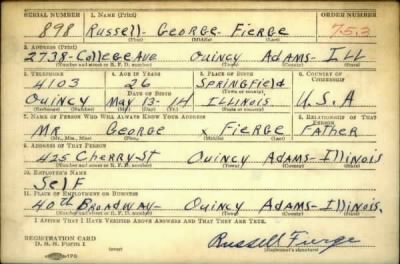 SERIAL NUMBER 1. NAME (Print) ORDER NUMBER
898 Russell- George- Fierge 753
(First) (Middle) (Last)
2. ADDRESS (Print)
2738-College Ave Quincy Adams- Ill
(Number and street or R. F. D. number) (Town) (County) (State)
3. TELEPHONE 4. AGE IN YEARS 5. PLACE OF BIRTH 6. COUNTRY OF CITIZENSHIP
4103 26 Springfield
DATE OF BIRTH (Town or county)
Quincy May-13-14 Illinois U.S.A
(Exchange) (Number) (Mo.) (Day) (Yr.) (State or country)
7. NAME OF PERSON WHO WILL ALWAYS KNOW YOUR ADDRESS 8. RELATIONSHIP OF THAT PERSON
Mr George x Fierge Father
(Mr., Mrs., Miss) (First) (Middle) (Last)
9. ADDRESS OF THAT PERSON
425 Cherry-St Quincy Adams-Illinois
(Number and street or R. F. D. number) (Town) (County) (State)
10. EMPLOYER'S NAME
Self
11. PLACE OF EMPLOYMENT OR BUSINESS
40th Broadway- Quincy Adams-Illinois.
(Number and street or R. F. D. number) (Town) (County) (State)
I AFFIRM THAT I HAVE VERIFIED ABOVE ANSWERS AND THAT THEY ARE TRUE.
REGISTRATION CARD
D. S. S. Form 1 (over)
Russell Fierge
(Registrant's signature)